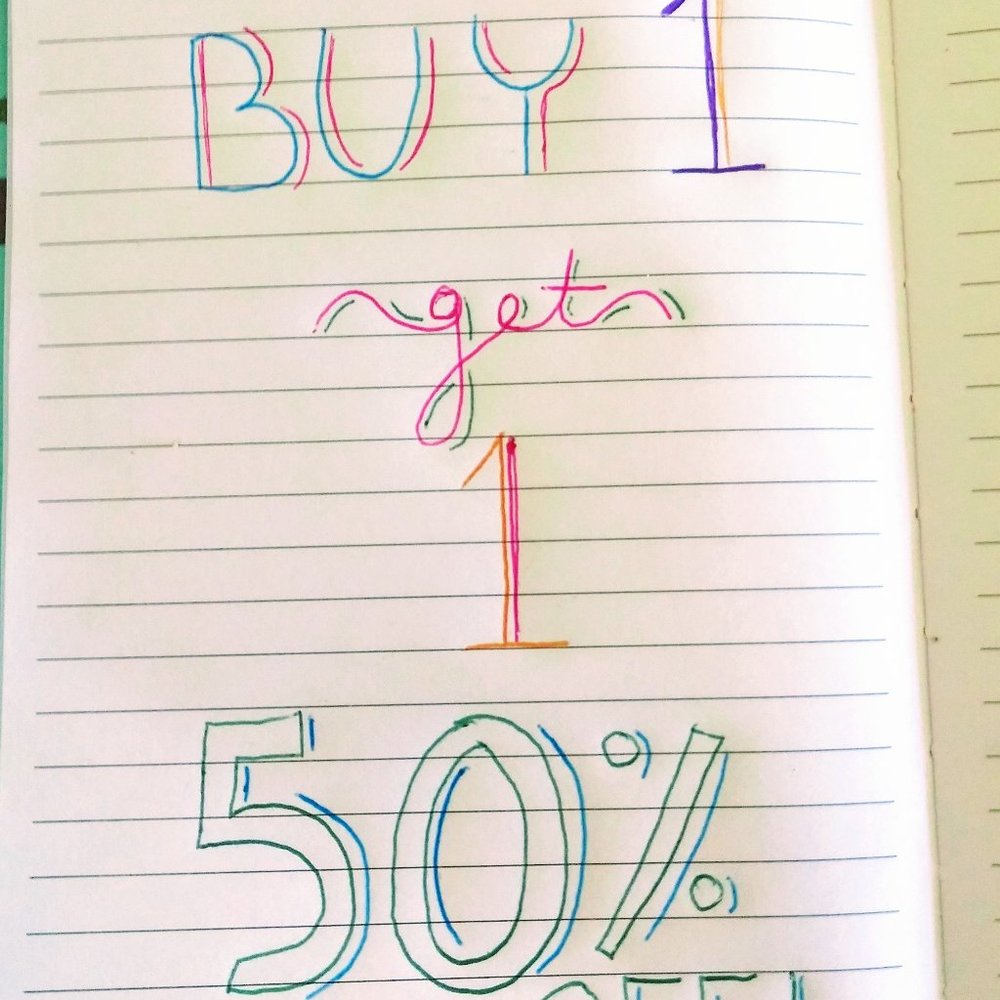 BUY 1
get
1
50%
OFF!